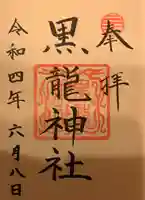 奉拝
黒龍神社
令和四年六月八日